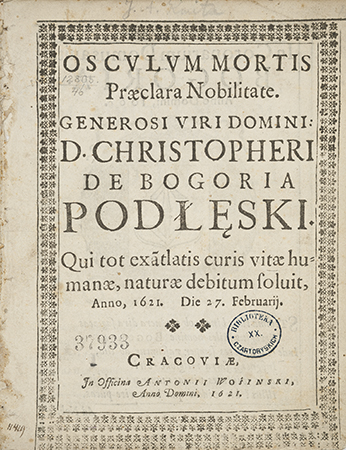 OSCVLVM MORTIS
Præclara Nobilitate.
GENEROSI VIRI DOMINI:
D. CHRISTOPHERI
DE BOGORIA
PODŁĘSKI.
Qui tot exãtlatis curis vitæ hu-
manæ, naturæ debitum soluit,
Anno, 1621. Die 27. Februarij.
37933
BIBLIOTEKA
XX.
CZARTORYSKICH
CRACOVIÆ,
In Officina ANTONII WOSINSKI,
Anno Domini, 1621.